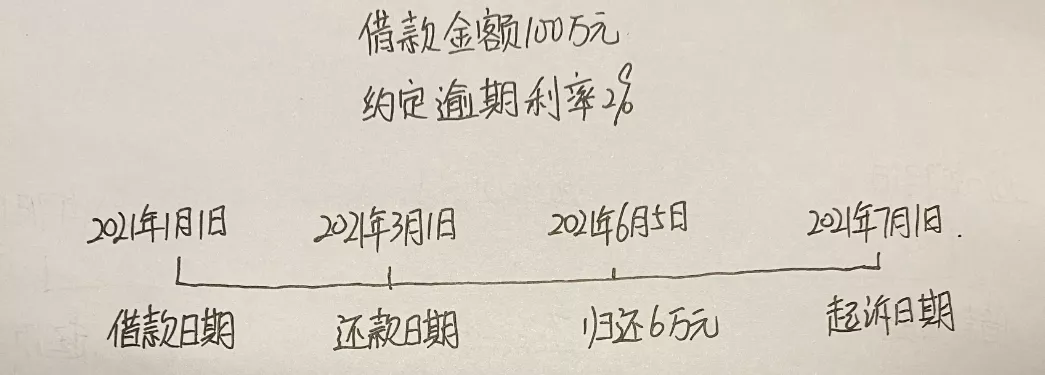 借款金额100万元
约定逾期利率2%
2021年1月1日 2021年3月1日 2021年6月5日 2021年7月1日.
借款日期 还款日期 归还6万元 起诉日期